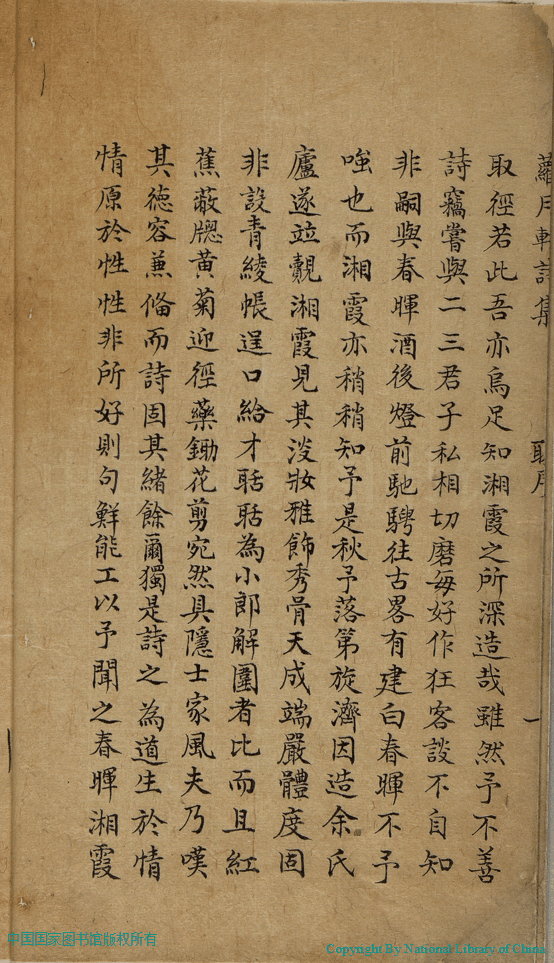 蘿月軒詩集
取徑若此吾亦烏足知湘霞之所深造哉雖然予不善
詩竊嘗與二三君子私相切磨每好作狂客談不自知
非嗣與春暉酒後燈前馳騁往古畧有建白春暉不予
嗤也而湘霞亦稍稍知予是秋予落第旋濟因造余氏
廬遂竝覿湘霞見其淡妝雅飾秀骨天成端嚴體度固
非設青綾帳逞口給才聒聒為小郎解圍者比而且紅
蕉蔽牕黃菊迎徑藥鋤花剪宛然具隱士家風夫乃嘆
其德容兼偹而詩固其緒餘爾獨是詩之為道生於情
情原於性性非所好則句鮮能工以予聞之春暉湘霞
中国国家图书馆版权所有
Copyright By National Library of China